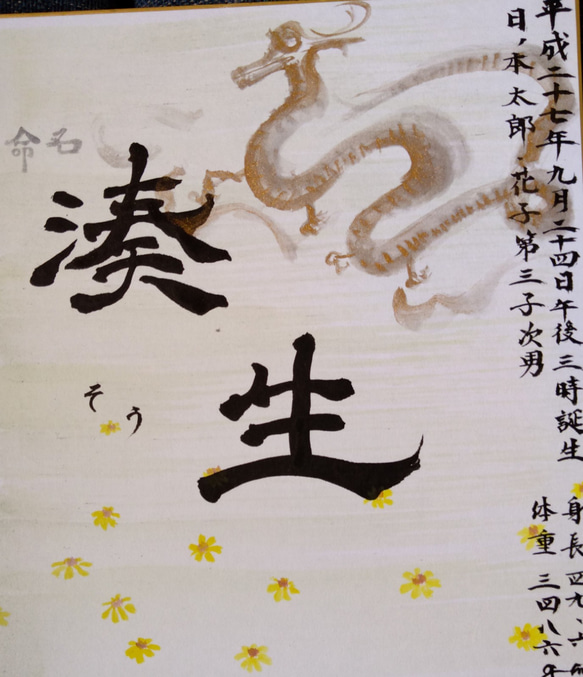 平成二十七年九月二十四日午後三時誕生
身長四九、六
日ノ本太郎・花子第三子次男
体重三四八六
命名
湊生
そう